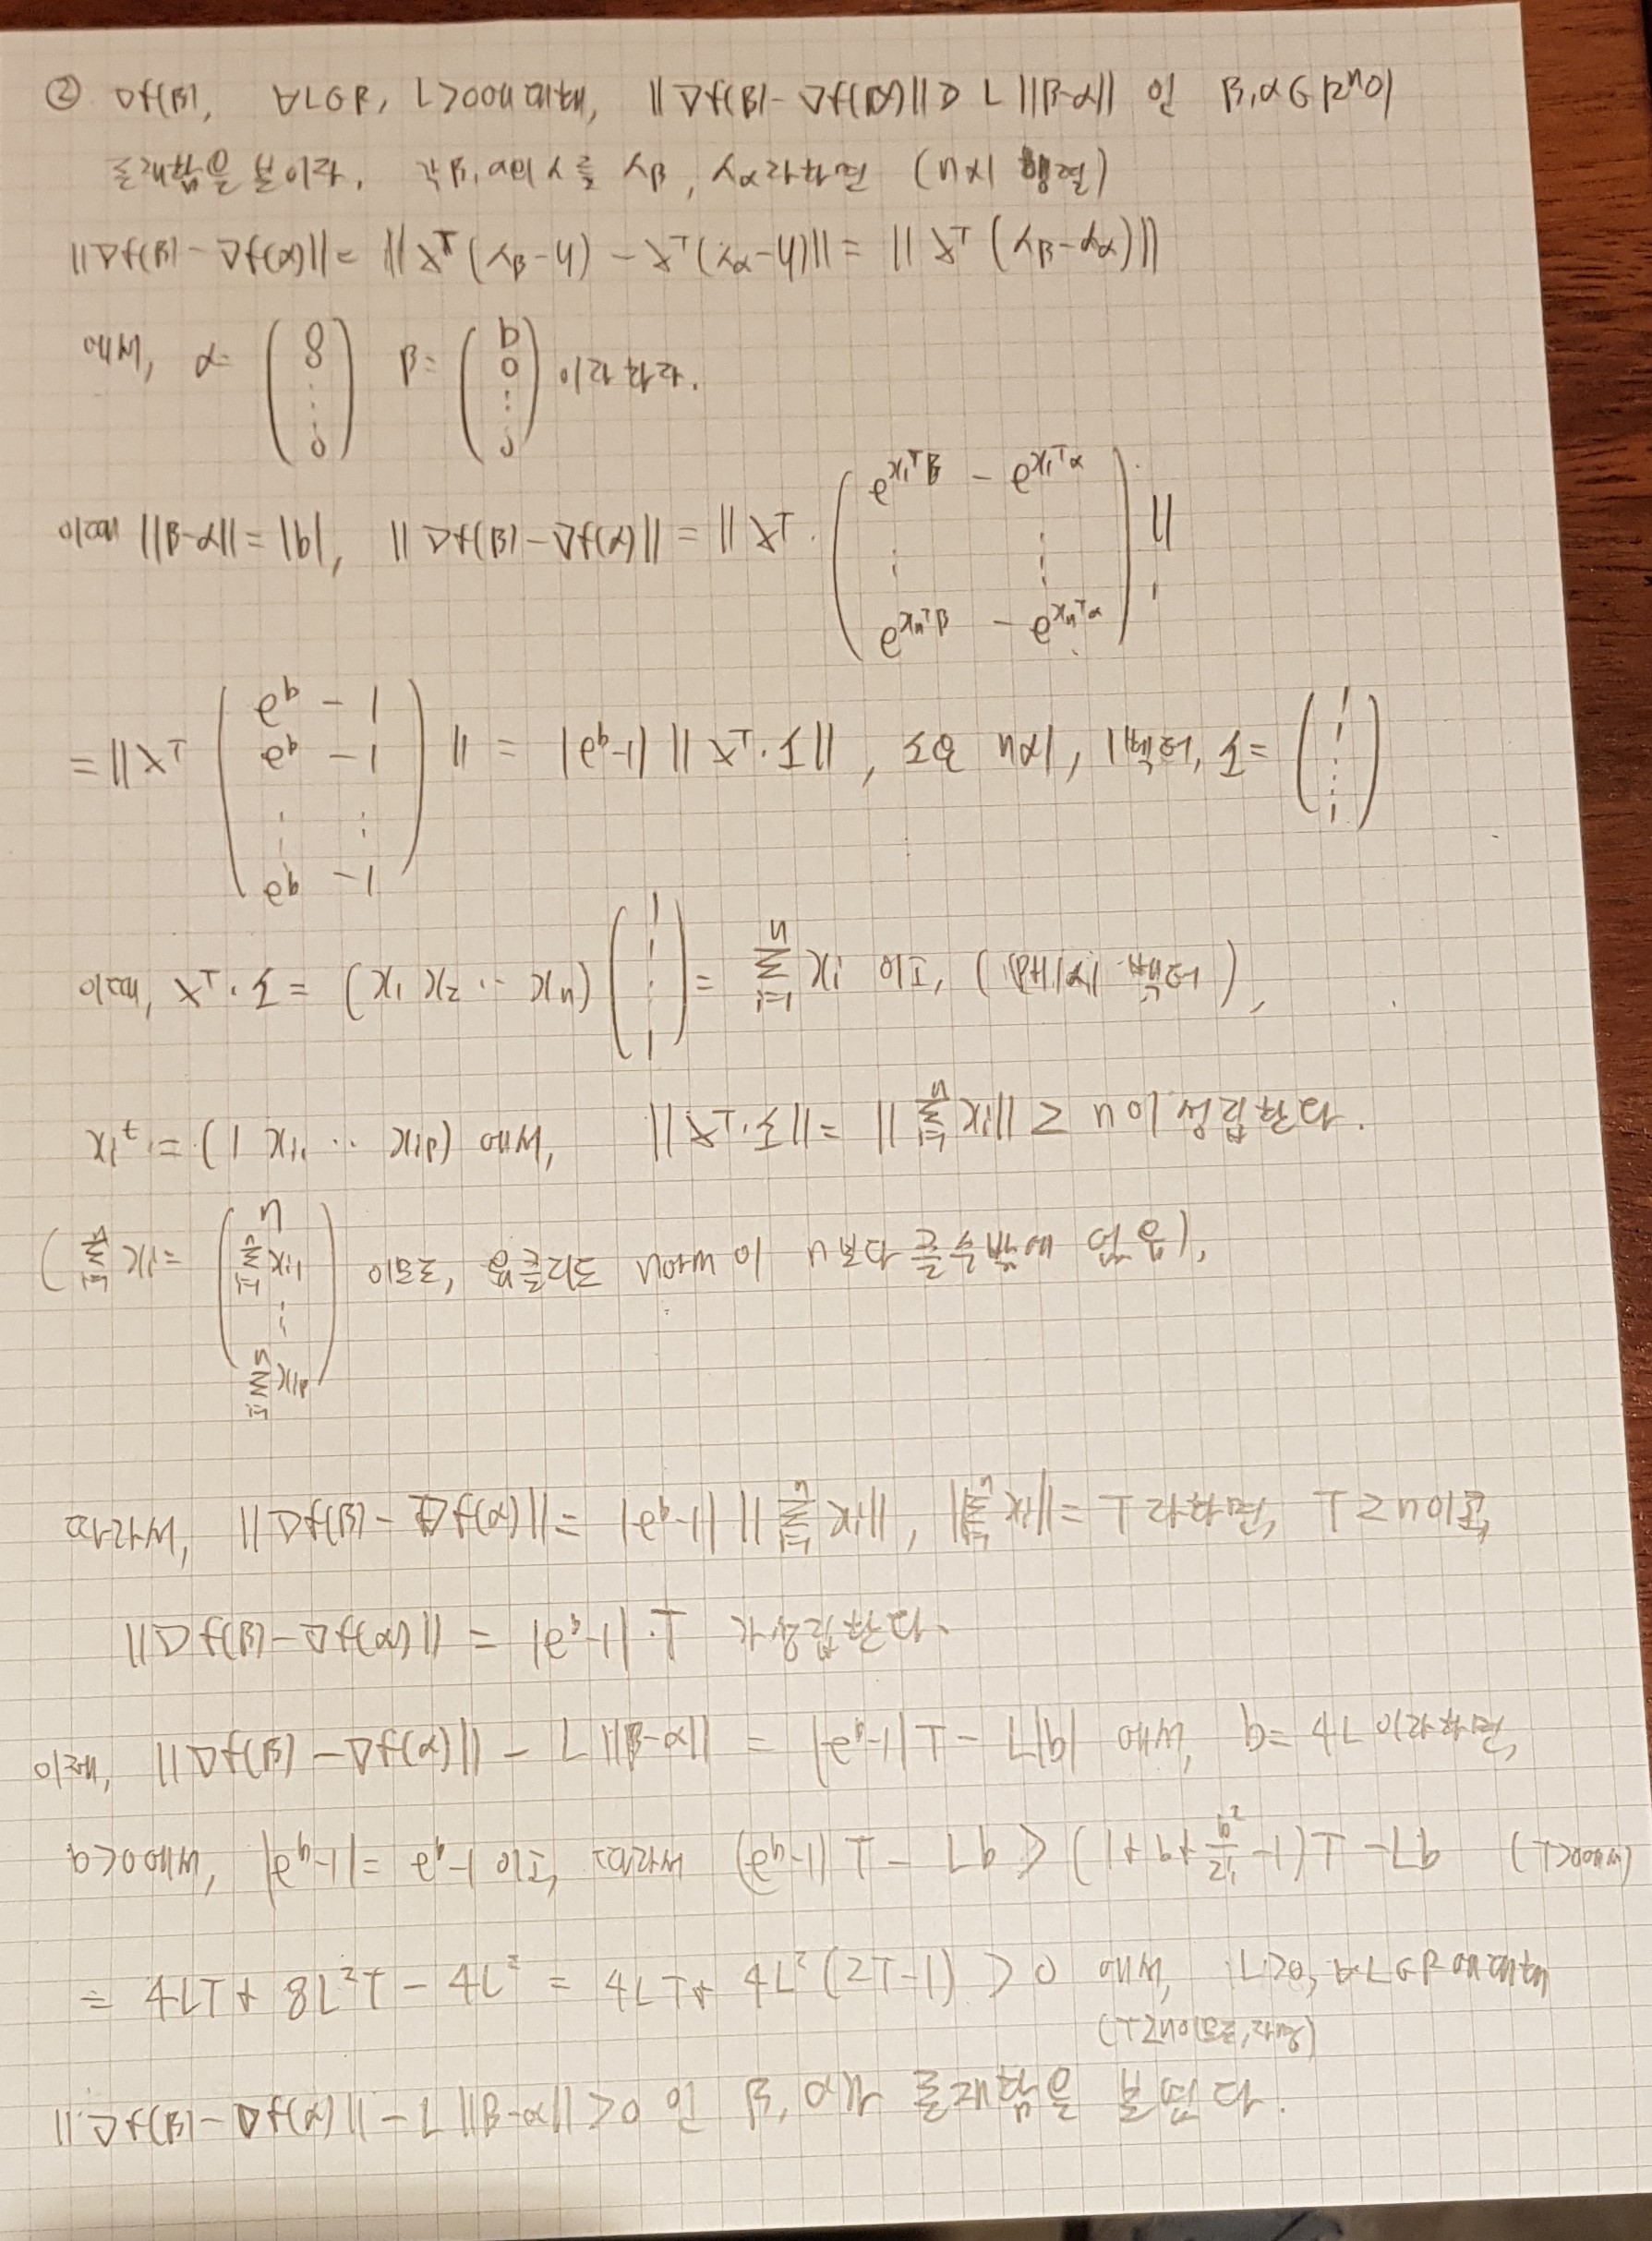 ② ∇f(β), ∀L∈R, L>0에 대해, ||∇f(β) - ∇f(α)|| > L ||β-α|| 인 β, α ∈ Rⁿ이
존재함을 보이라. 각 β, α의 λ를 λβ, λα라 하면 (n×1 행렬)
||∇f(β) - ∇f(α)|| = ||Xᵀ(λβ-y) - Xᵀ(λα-y)|| = ||Xᵀ(λβ-λα)||
에서, α = (0 0 ⋮ 0) β = (b 0 ⋮ 0) 이라 하자.
이때 ||β-α|| = |b|, ||∇f(β) - ∇f(α)|| = ||Xᵀ · (e^{x₁ᵀβ} - e^{x₁ᵀα} ⋮ e^{xₙᵀβ} - e^{xₙᵀα})||
= ||Xᵀ (e^b - 1 e^b - 1 ⋮ e^b - 1)|| = |e^b-1| ||Xᵀ·1||, 1은 n×1, 1벡터, 1 = (1 1 ⋮ 1)
이때, Xᵀ·1 = (x₁ x₂ ⋯ xₙ) (1 1 ⋮ 1) = Σ_{i=1}^{n} xᵢ 이고, (p+1×1 벡터),
xᵢᵗ = (1 xᵢ₁ ⋯ xᵢp) 에서, ||Xᵀ·1|| = ||Σ_{i=1}^{n} xᵢ|| ≥ n 이 성립한다.
(Σ_{i=1}^{n} xᵢ = (n Σ_{i=1}^{n} xᵢ₁ ⋮ Σ_{i=1}^{n} xᵢp) 이므로, 유클리드 norm이 n보다 클 수밖에 없음),
따라서, ||∇f(β) - ∇f(α)|| = |e^b-1| ||Σ_{i=1}^{n} xᵢ||, ||Σ_{i=1}^{n} xᵢ|| = T 라 하면, T ≥ n이고,
||∇f(β) - ∇f(α)|| = |e^b-1|·T 가 성립한다.
이제, ||∇f(β) - ∇f(α)|| - L ||β-α|| = |e^b-1| T - L|b| 에서, b = 4L 이라 하면,
b>0에서, |e^b-1| = e^b-1 이고, 따라서 (e^b-1) T - Lb > (1+b+b²/2!-1) T - Lb (T>0에서)
= 4LT + 8L²T - 4L² = 4LT + 4L²(2T-1) > 0 에서, L>0, ∀L∈R에 대해
(T≥n이므로, 자명)
||∇f(β) - ∇f(α)|| - L ||β-α|| > 0 인 β, α가 존재함을 보였다.